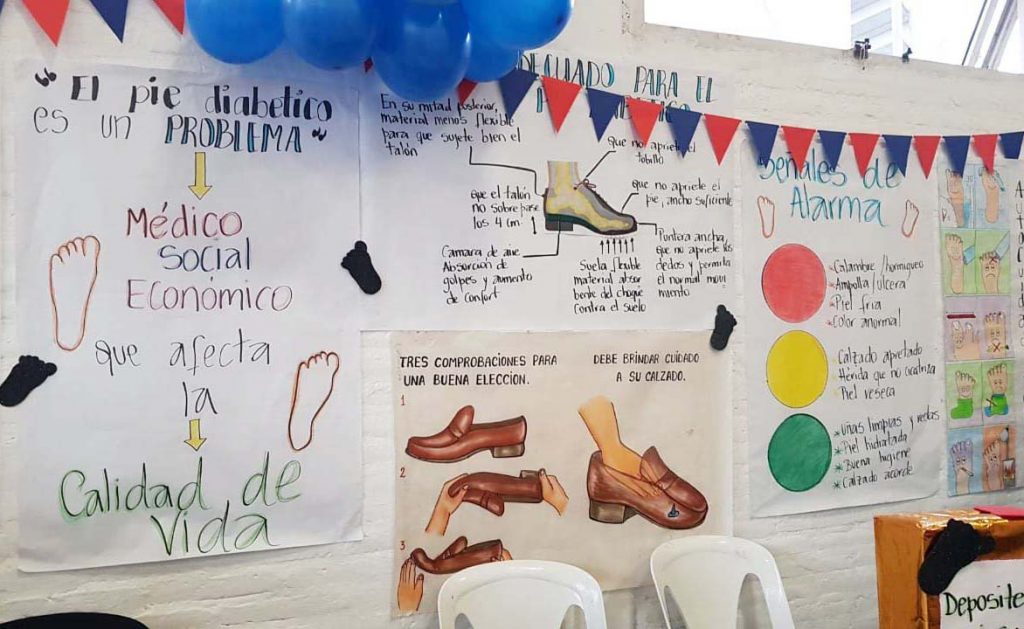 "El pie diabético
es un PROBLEMA"
Médico
Social
Económico
que afecta
la
Calidad de
Vida
PARA EL
En su mitad posterior,
material menos flexible
para que sujete bien el
talón
que no apriete el
tobillo
que el talón
no sobrepase
los 4 cm
que no apriete el
pie, ancho suficiente
Camara de aire
Absorción de
golpes y aumento
de confort
Suela flexible
material absor
bente del choque
contra el suelo
Puntera ancha,
que no apriete los
dedos y permita
el normal movi
miento
TRES COMPROBACIONES PARA
UNA BUENA ELECCION.
DEBE BRINDAR CUIDADO
A SU CALZADO.
1
2
3
Señales de
Alarma
*Calambre/hormigueo
*Ampolla/ulcera
*Piel fria
*Color anormal
Calzado apretado
Hérida que no cicatriza
Piel reseca
*Uñas limpias y rectas
*Piel hidratada
*Buena higiene
*Calzado acorde
Deposite